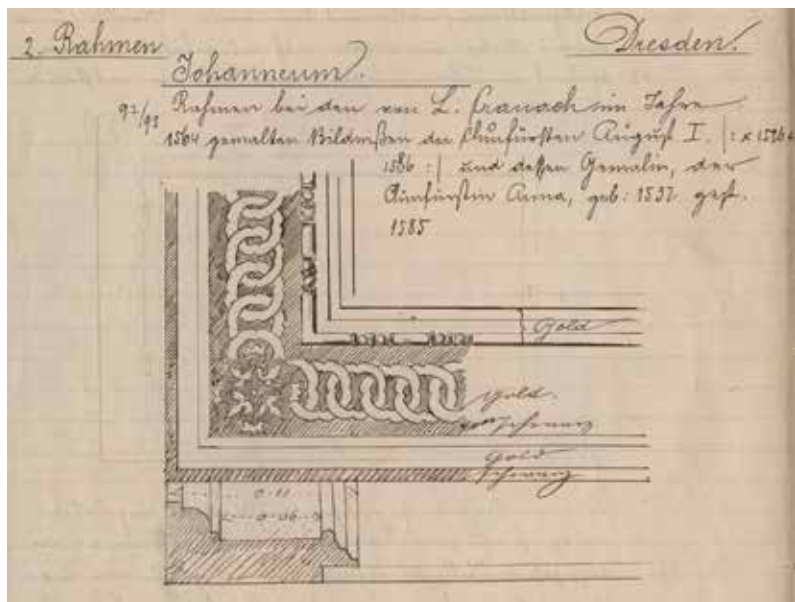 2. Rahmen
Dresden.
Johanneum.
92/93
Rahmen bei den von L. Cranach im Jahre
1564 gemalten Bildnißen des Churfürsten August I. |: x 1526 +
1586 :| und dessen Gemalin, der
Churfürstin Anna, geb: 1532 gest.
1585
Gold
gold.
schwarz
gold
schwarz
0.11
0.06